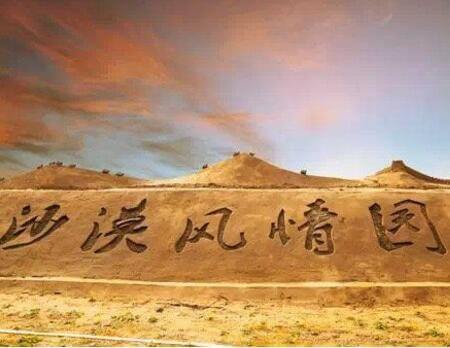 沙漠风情园